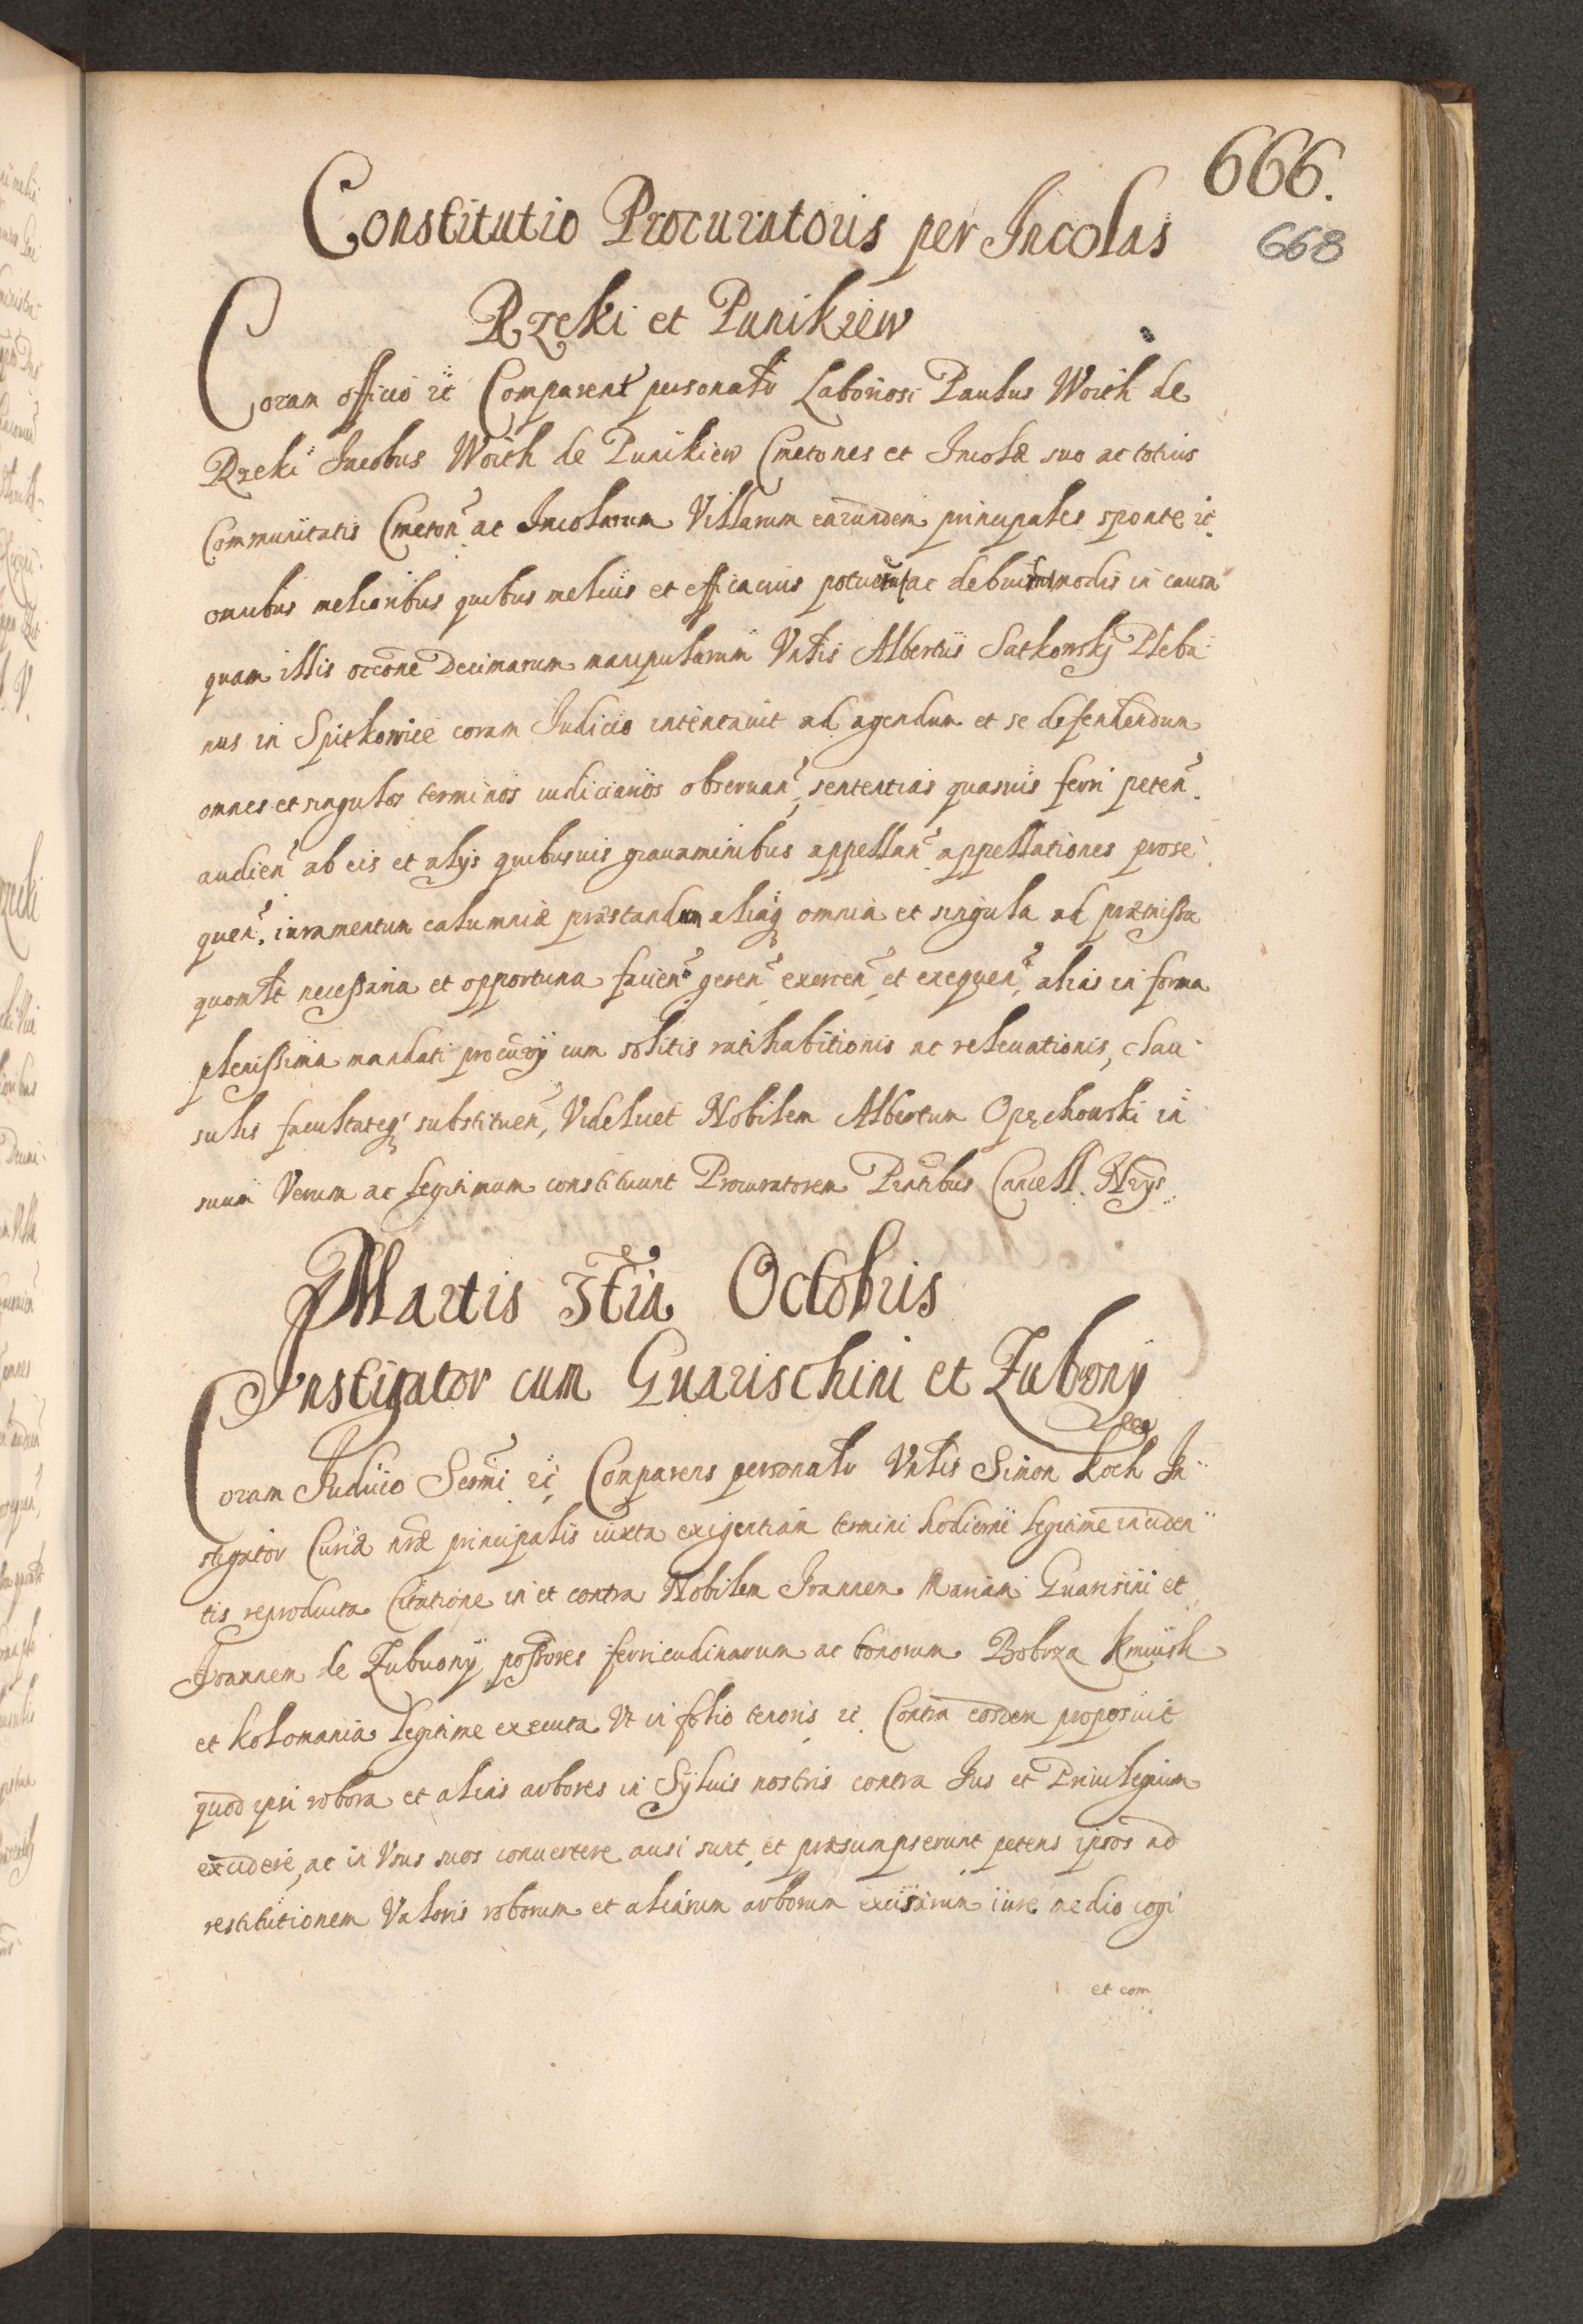 666.
668
Constitutio Procuratoris per Incolas
Rzeki et Punikiew
Coram officio zc Comparent personalr Laboriosi Paulus Woith de
Rzeki Jacobus Woith de Punikiew Cmetones et Incolæ suo ac totius
Communitatis Cmeton. ac Incolarum Villarum earundem principales sponte zc.
omnibus melioribus quibus melius et efficacius potuerunt ac debuerunt modis in causa
quam illis occõne Decimarum manipularum Vnlis Albertus Satkowskj Pleba-
nus in Spitkowice coram Judicio intentauit ad agendum et se defendendum
omnes et singulos terminos iudiciarios obseruan, sententias quasuis ferri peten.
audien ab eis et alijs quibusuis grauaminibus appellan. appellationes prose-
quen. iuramentum calumniæ præstandum aliaq omnia et singula ad præmissa
quomlt necessaria et opportuna facien. geren. exercen. et exequen. alias in forma
plenissima mandati procurij cum solitis ratihabitionis ac releuationis, clau-
sulis facultateq substituen, Videlicet Nobilem Albertum Opęchowski in
suum Verum ac legitimum constituunt Procuratorem Pntibus Cancell. Nrijs
Martis 3tia Octobris
Instigator cum Guarischini et Zubony
Coram Judicio Sermi zc Comparens personalr Vnlis Simon Koch In-
stigator Curiæ nræ principalis iuxta exigentiam termini hodierni legitime inciden-
tis reproducta Citatione in et contra Nobilem Joannem Mariam Guarisini et
Joannem de Zubuony possores ferricudinarum ac bonorum Bobrza Kmiush
et Kolomania legitime executa Vt in folio tenoris zc Contra eosdem proposuit
quod ipsi robora et alias arbores in Syluis nostris contra Jus et Priuilegium
excidere, ac in Vsus suos conuertere ausi sunt et præsumpserunt petens ipsos ad
restitutionem Valoris roborum et aliarum arborum excisarum iure medio cogi
et com